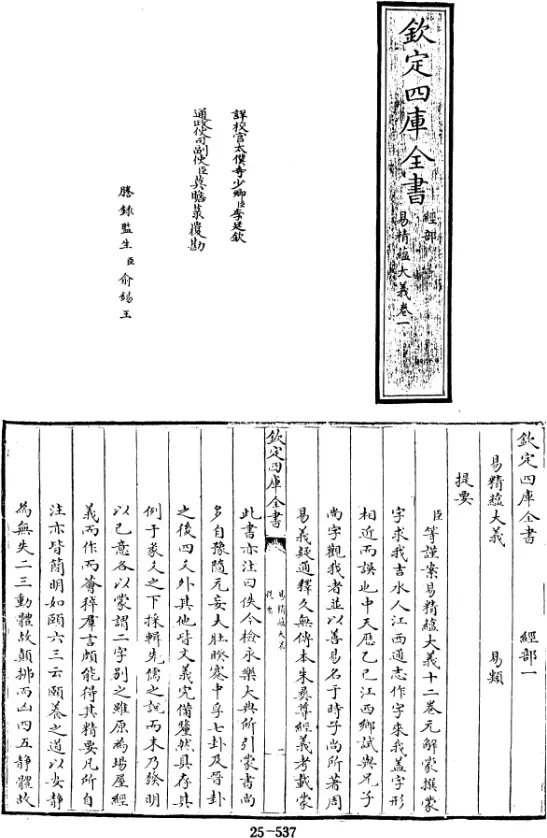 欽定四庫全書
經部
易精蘊大義卷一
詳校官太僕寺少卿臣李廷欽
通政使司副使臣莫瞻菉覆勘
謄錄監生臣俞錫玉
欽定四庫全書
經部一
易精蘊大義
易類
提要
臣等謹案易精蘊大義十二卷元解蒙撰蒙
字求我吉水人江西通志作字來我蓋字形
相近而誤也中天厯乙巳江西鄉試與兄子
尚字觀我者並以善易名于時子尚所著周
易義疑通釋久無傳本朱彞尊經義考載蒙
欽定四庫全書
易精蘊大義
提要
一
此書亦注曰佚今檢永樂大典所引蒙書尚
多自豫隨无妄大壯睽蹇中孚七卦及晉卦
之後四爻外其他皆文義完備釐然具存其
例于彖爻之下採輯先儒之說而末乃發明
以己意各以蒙謂二字别之雖原為塲屋經
義而作而薈稡羣言頗能得其精要凡所自
注亦皆簡明如頤六三云頤養之道以安静
為無失二三動體故顛拂而凶四五静體故
25-537